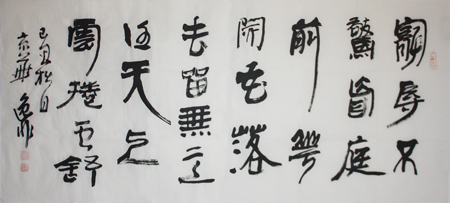 寵辱不
驚看庭
前花
開花落
去留無意
任天上
雲捲雲舒
己丑秋日
京華